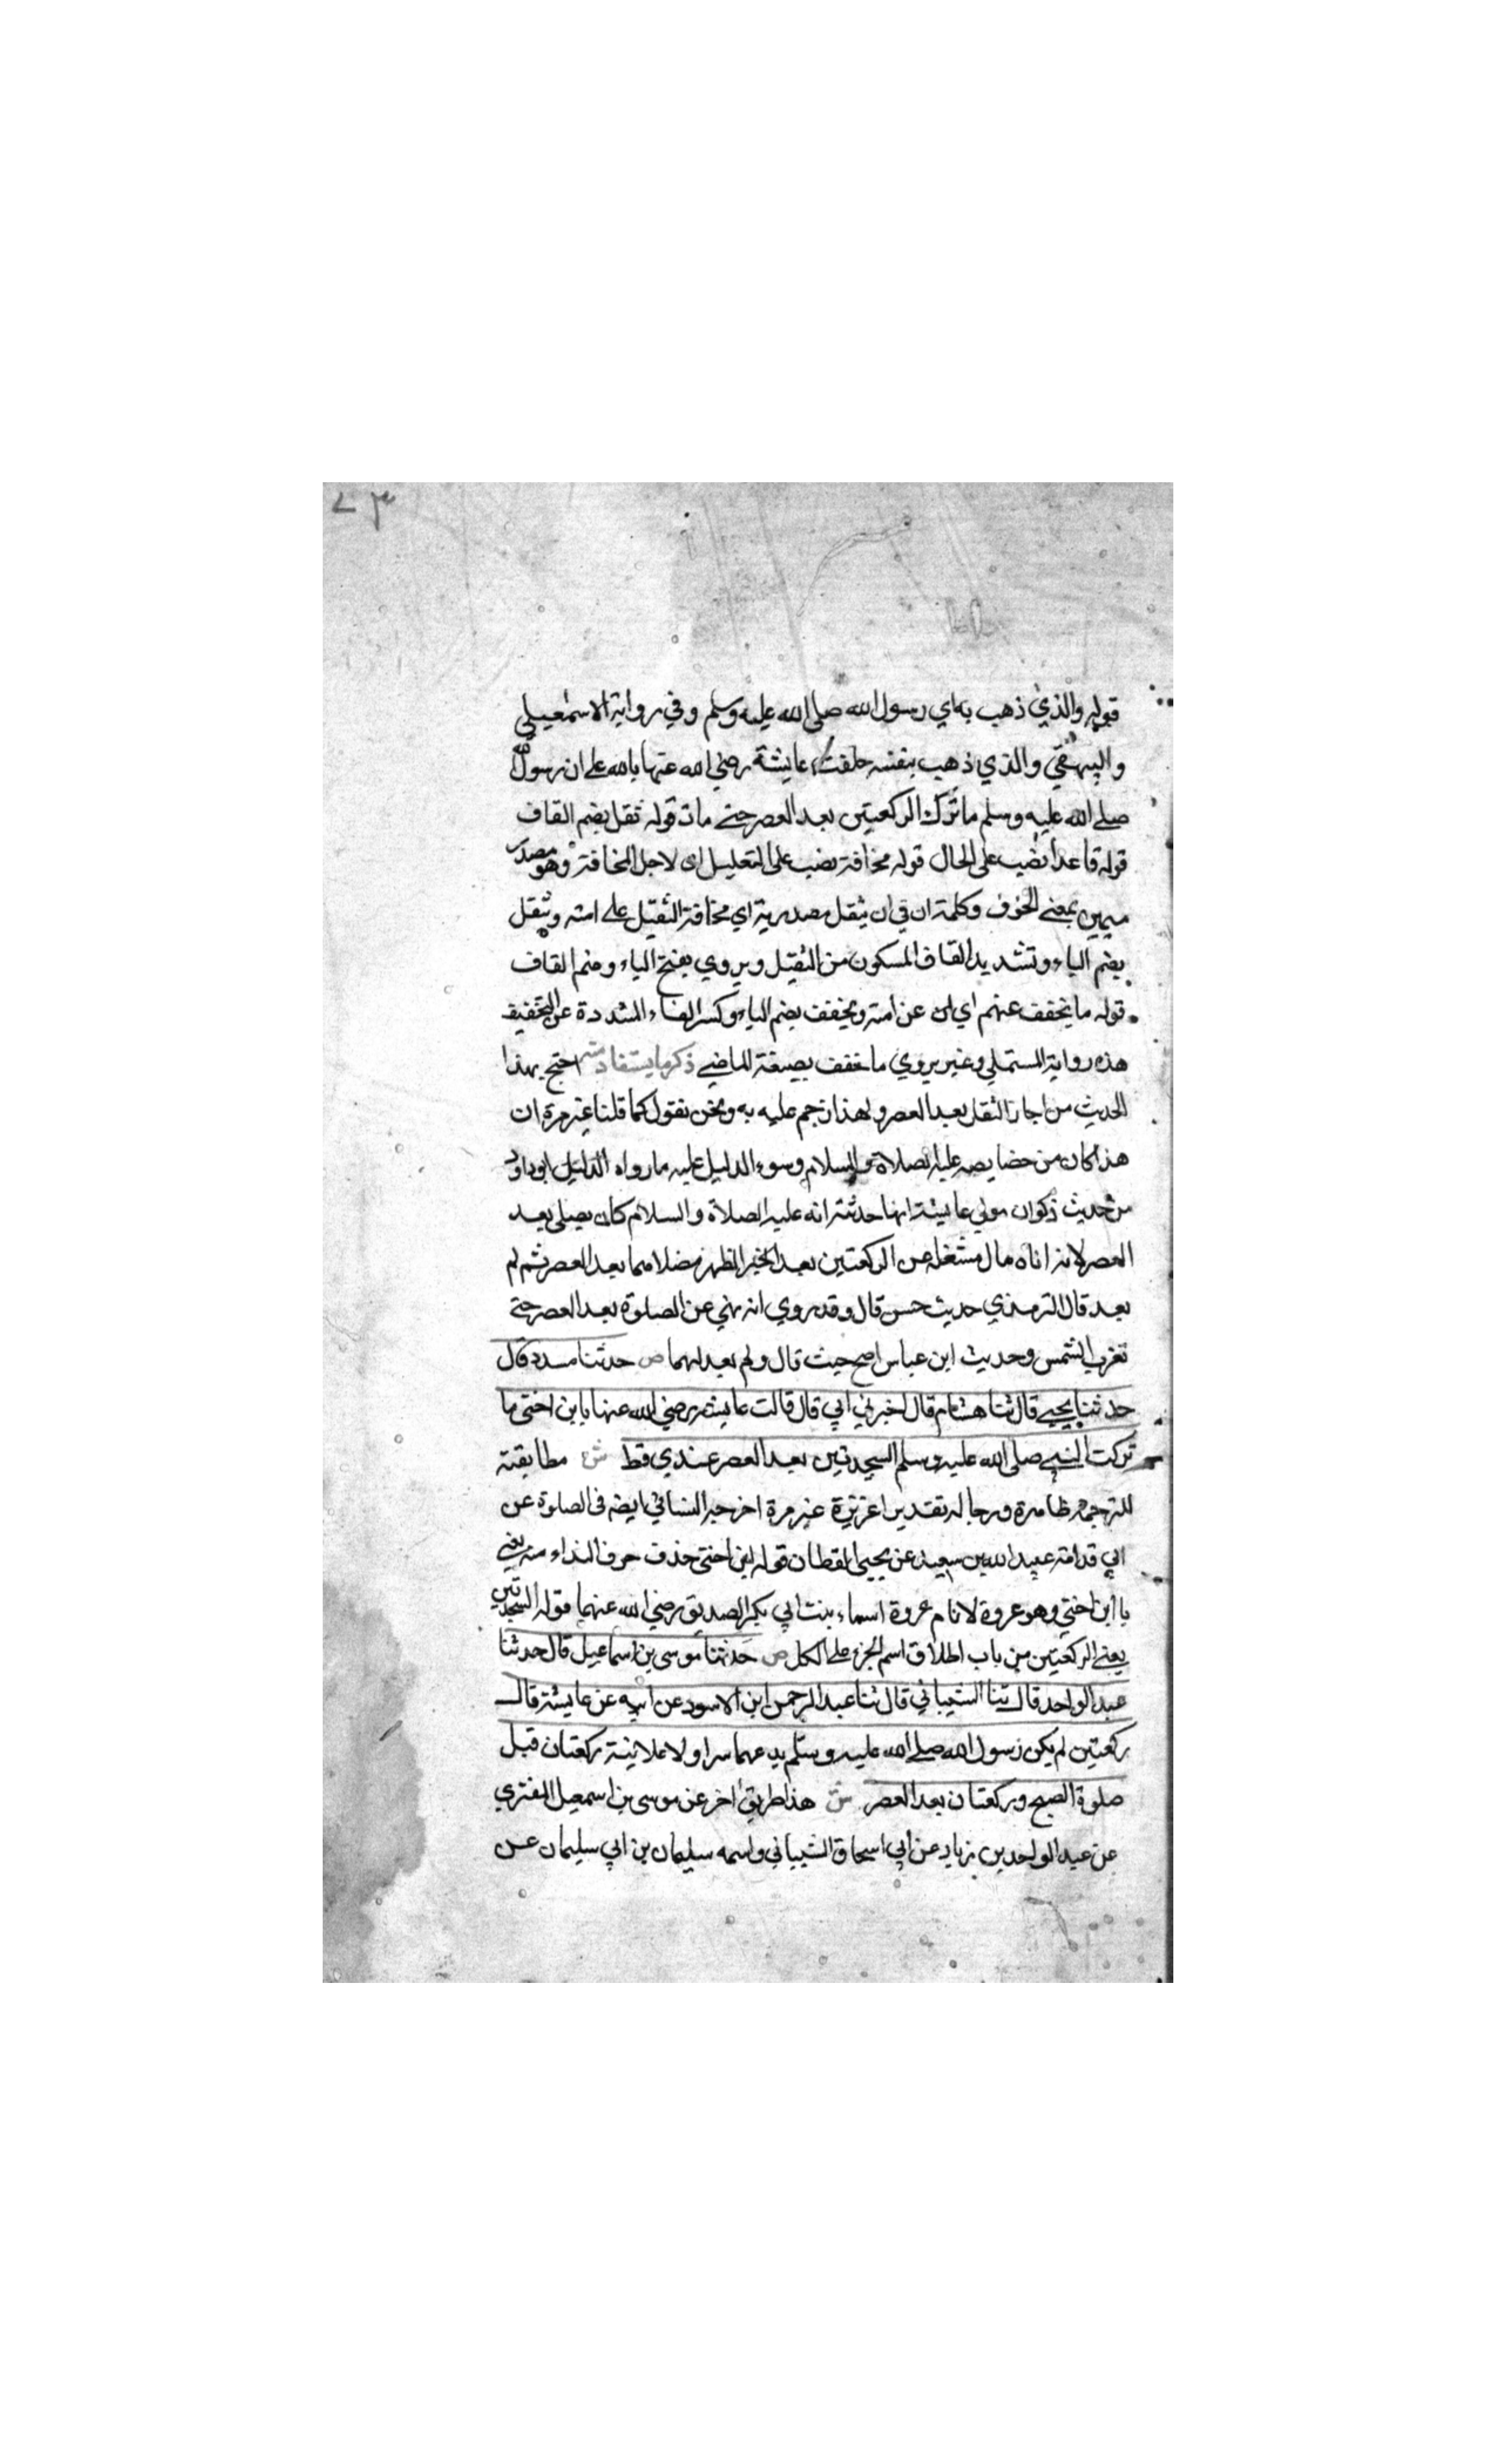 قوله والذي ذهب به اي رسول الله صلى الله عليه وسلم وفي رواية الاسمعيلي
والبيهقي والذي ذهب بنفسه حلفت عايشة رضي الله عنها بالله على ان رسول الله
صلى الله عليه وسلم ما ترك الركعتين بعد العصر حتى مات قوله ثقل بضم القاف
قوله قاعدا نصب على الحال قوله مخافة نصب على التعليل اى لاجل المخافة وهو مصدر
ميمي بمعنى الخوف وكلمة ان في ان يثقل مصدرية اي مخافة التثقيل على امته ويثقل
بضم الياء وتشديد القاف المسكون من التثقيل ويروي بفتح الياء وضم القاف
قوله ما يخفف عنهم اي عن امته ويخفف بضم الياء وكسر الفاء المشددة على التخفيف
هذه رواية المستملي وغيره يروي ما خفف بصيغة الماضي ذكر ما يستفاد منه احتج بهذا
الحديث من اجاز النفل بعد العصر ولهذا ترجم عليه به ونحن نقول كما قلنا غير مرة ان
هذا كان من خصايصه عليه الصلاة والسلام وسوء الدليل عليه ما رواه الدليل ابو داود
من حديث ذكوان مولى عايشة انها حدثته انه عليه الصلاة والسلام كان يصلى بعد
العصر لانه اتاه مال فشغله عن الركعتين بعد الظهر فصلاهما بعد العصر ثم لم
يعد قال الترمذي حديث حسن قال وقد روي انه نهي عن الصلوة بعد العصر حتى
تغرب الشمس وحديث ابن عباس اصح حيث قال ولم يعد لهما ص حدثنا مسدد قال
حدثنا يحيى قال ثنا هشام قال اخبرني ابي قال قالت عايشة رضي الله عنها يا بن اختي ما
تركت النبي صلى الله عليه وسلم السجدتين بعد العصر عندي قط ش مطابقته
للترجمة ظاهرة ورجاله تقدموا غير مرة اخرجه النسائي ايضه في الصلوة عن
ابي قدامة عبيد الله بن سعيد عن يحيى القطان قوله ابن اختي حذف حرف النداء منه يعني
يا ابن اختي وهو عروة لان ام عروة اسماء بنت ابي بكر الصديق رضي الله عنهما قوله السجدتين
يعني الركعتين من باب اطلاق اسم الجزء على الكل ص حدثنا موسى بن اسماعيل قال حدثنا
عبد الواحد قال ثنا الشيباني قال ثنا عبد الرحمن ابن الاسود عن ابيه عن عايشة قال
ركعتين لم يكن رسول الله صلى الله عليه وسلم يدعهما سرا ولا علانية ركعتان قبل
صلوة الصبح وركعتان بعد العصر ش هذا طريق اخر عن موسى بن اسمعيل المنقري
عن عبد الواحد بن زياد عن ابي اسحاق الشيباني واسمه سليمان بن ابي سليمان عن